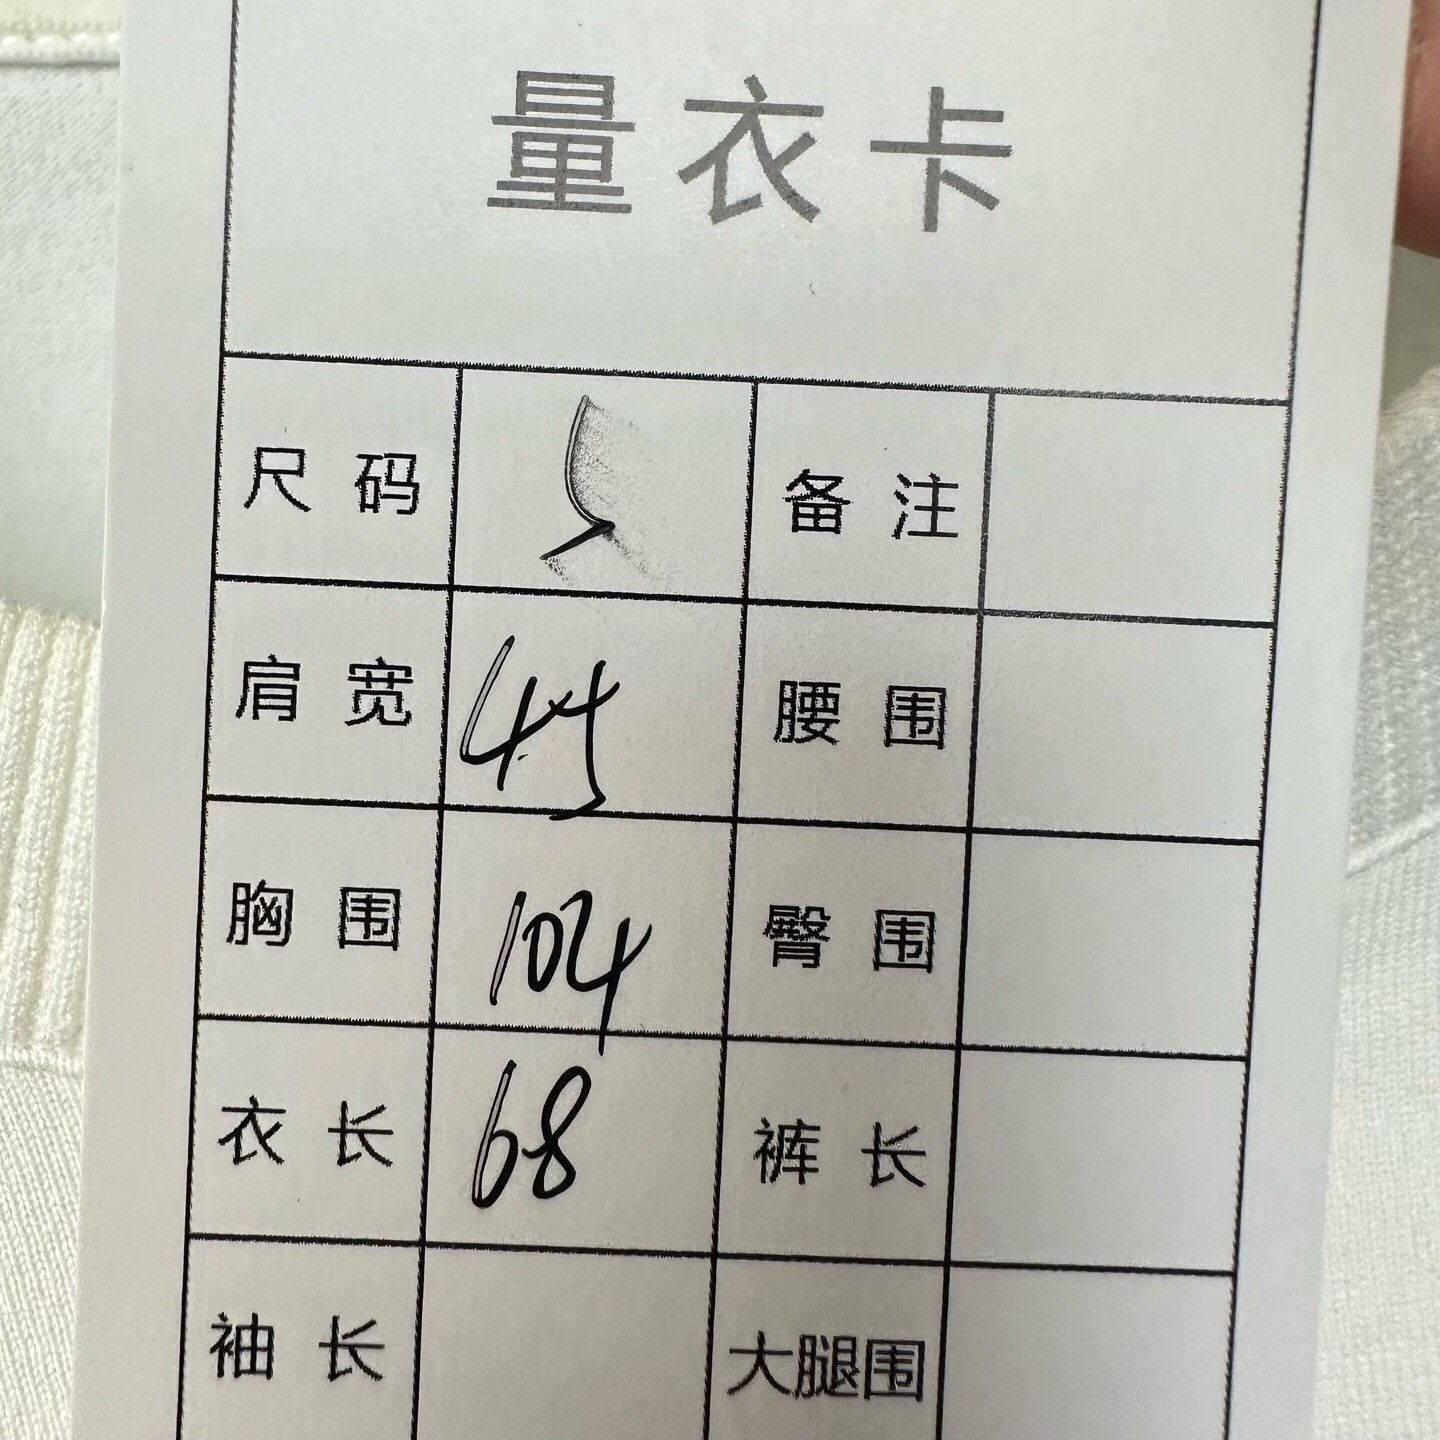 量衣卡
尺码 备注
肩宽 45 腰围
胸围 104 臀围
衣长 68 裤长
袖长 大腿围